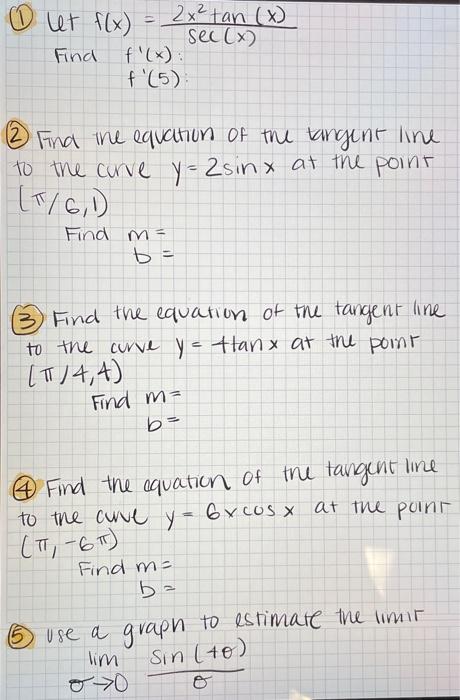 ① Let f(x) = 2x² tan (x) / sec (x)
Find f'(x):
f'(5):
② Find the equation of the tangent line
to the curve y = 2sinx at the point
(π/6,1)
Find m =
b =
③ Find the equation of the tangent line
to the curve y = 4tanx at the point
(π/4,4)
Find m=
b=
④ Find the equation of the tangent line
to the curve y = 6xcosx at the point
(π,-6π)
Find m=
b=
⑤ Use a graph to estimate the limit
lim θ→0 sin(4θ) / θ